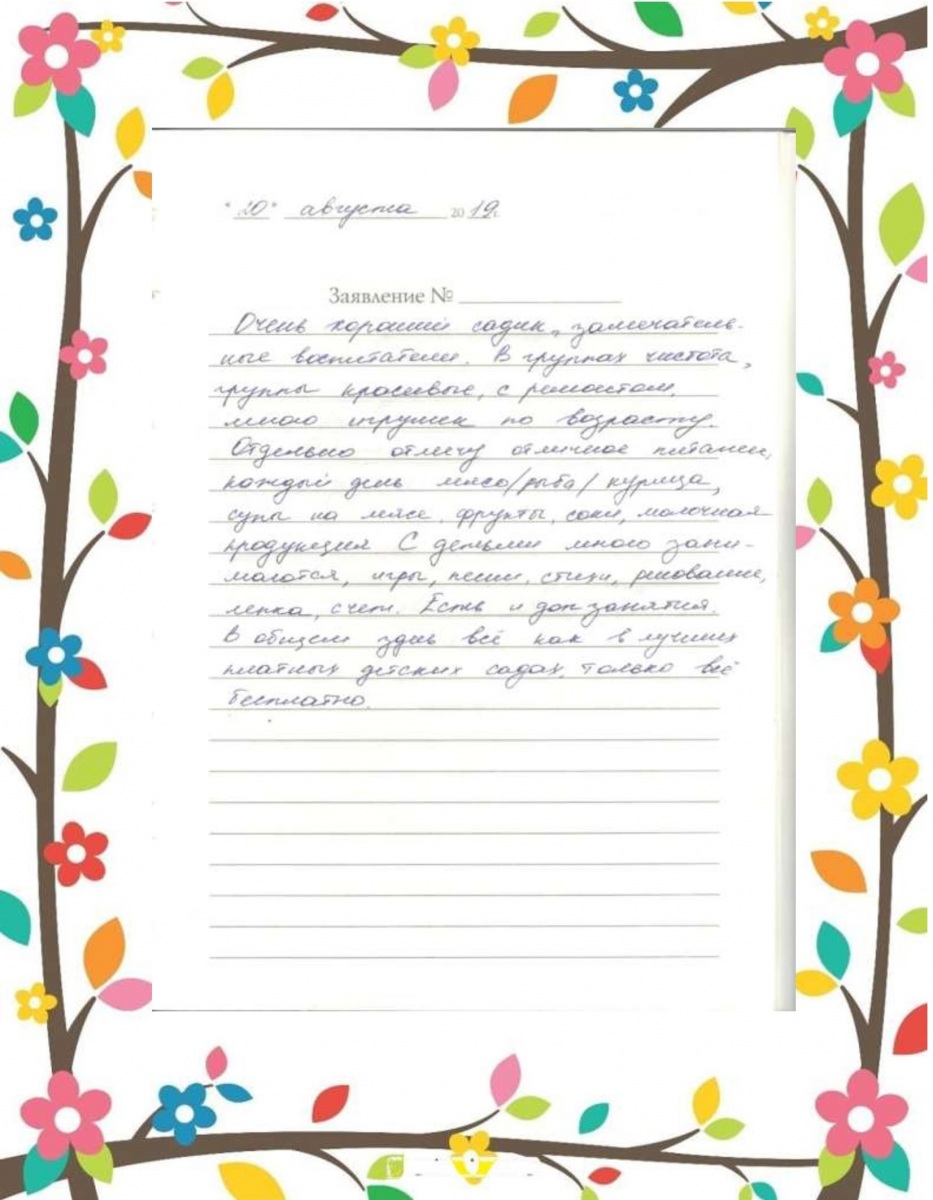 "20" августа 2019г.
Заявление №
Очень хороший садик, замечатель-
ные воспитатели. В группах чистота,
группы красивые, с ремонтом,
много игрушек по возрасту.
Отдельно отмечу отличное питание,
каждый день мясо/рыба/курица,
супы на мясе, фрукты, соки, молочная
продукция. С детьми много зани-
маются, игры, песни, стихи, рисование,
лепка, счет. Есть и доп занятия.
В общем здесь всё как в лучших
платных детских садах, только всё
бесплатно.